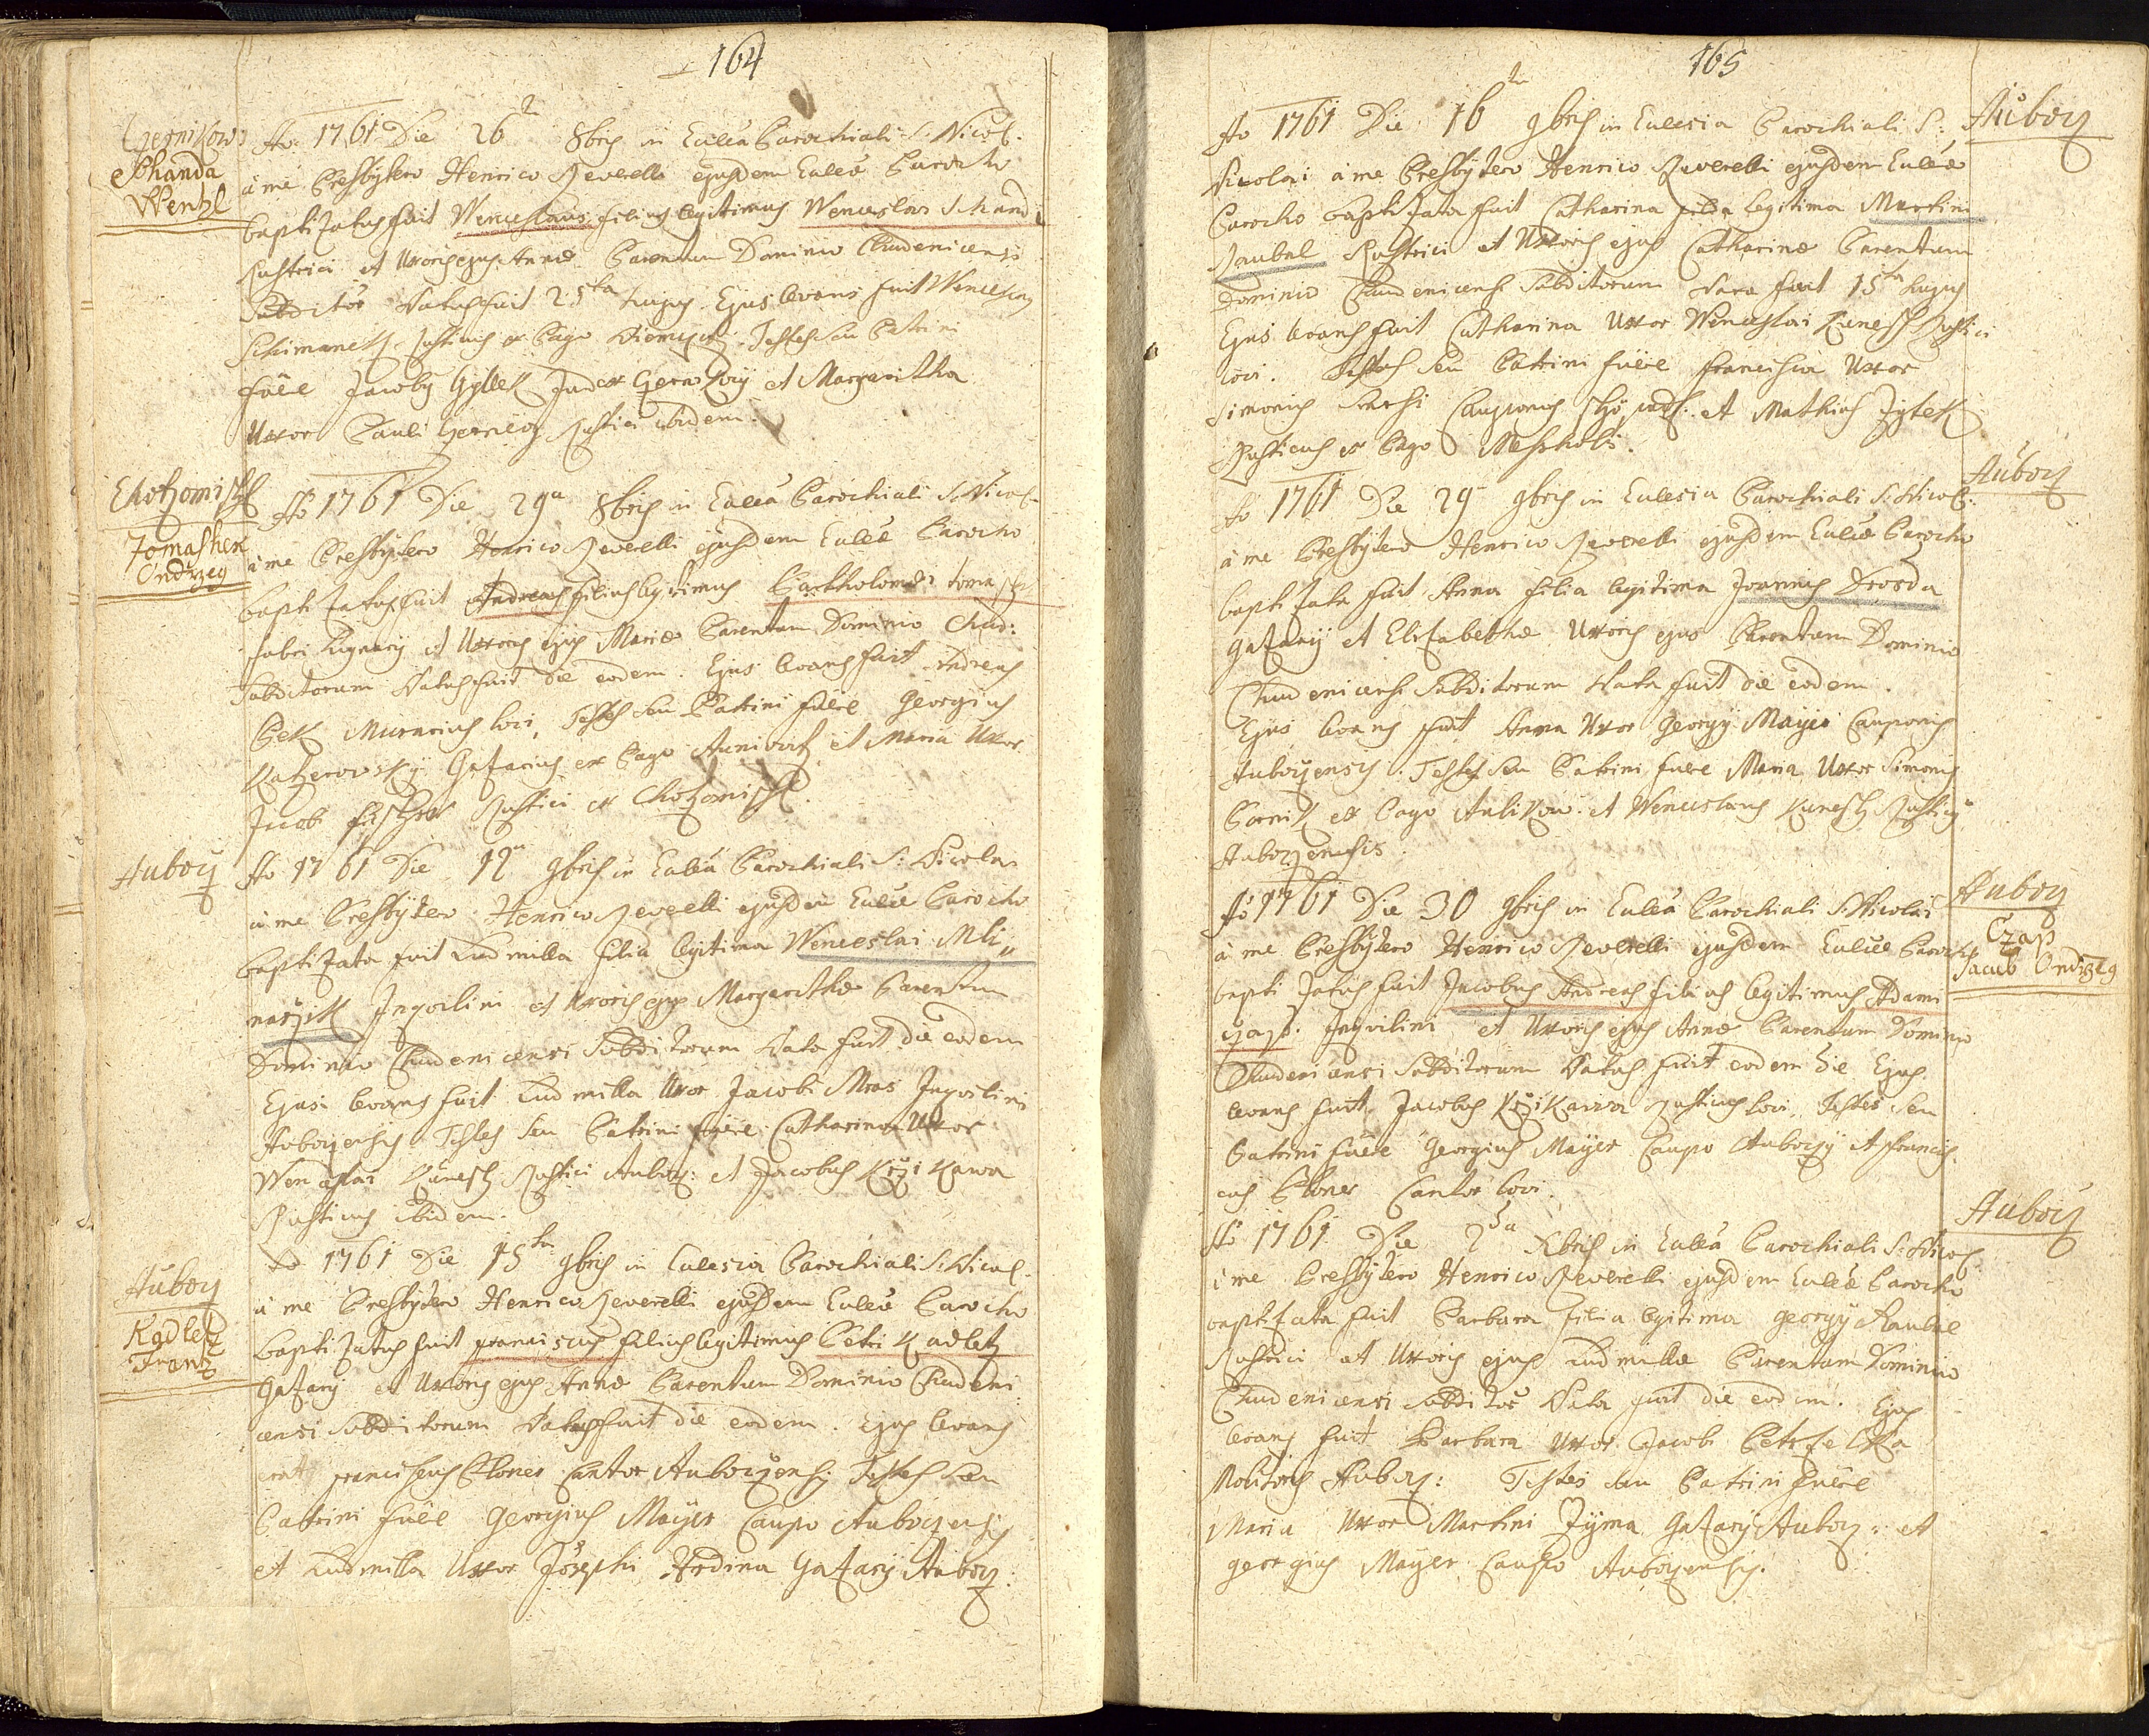 164
Czernikow
Schanda
Wentzl
Ao: 1761 Die 26ta 8bris in Ecclea Parochiali S: Nicol.
à me Presbytero Henrico Reverelli ejusdem Eccleæ Parocho
baptizatus fuit Wenceslaus filius legitimus Wenceslai Schandi
Rustici et Uxoris ejus Annæ Parentum Dominio Chudenicensi
Subditor̄ Natus fuit 25ta hujus Ejus levans fuit Wenceslaus
Schimanek Rusticus ex Pago Testes seu Patrini
fuere Jacobus Judex et Margaritha
Uxor Pauli Rustici ibidem.
Chotzomischl
Tomashek
Ondrzeg
Ao 1761 Die 29a 8bris in Ecclea Parochiali S: Nicol.
à me Presbytero Henrico Reverelli ejusdem Eccleæ Parocho
baptizatus fuit Andreas filius legitimus Bartholomæi Tomasch
fabri Lignarij et Uxoris ejus Mariæ Parentum Dominio Chud:
Subditorum Natus fuit die eodem. Ejus levans fuit Andreas
Bek Murarius loci, Testes seu Patrini fuere Georgius
Katzerowsky Gazarius ex Pago et Maria Uxor
Jacob Rustici ex Chotzomischl.
Auborz
Ao 1761 Die 12a 9bris in Ecclea Parochiali S: Nicolai
à me Presbytero Henrico Reverelli ejusdem Eccleæ Parocho
baptizata fuit Ludmilla filia legitima Wenceslai Mli„
narzik Inqvilini et Uxoris ejus Margarithæ Parentum
Dominio Chudenicensi Subditorum Nata fuit die eodem
Ejus levans fuit Ludmilla Uxor Jacobi Mras Inqvilini
Auborzensis Testes seu Patrini fuere Catharina Uxor
Wenceslai Kunesch Rustici Auborz: et Jacobus Krzikawa
Rusticus ibidem.
Auborz
Kadletz
Frantz
Ao 1761 Die 15ta 9bris in Ecclesia Parochiali S: Nicol.
à me Presbytero Henrico Reverelli ejusdem Eccleæ Parocho
baptizatus fuit Franciscus filius legitimus Petri Kadletz
Gazarij et Uxoris ejus Annæ Parentum Dominio Chudeni
censi Subditorum Natus fuit die eodem. Ejus levans
erat Franciscus Ebner Cantor Auborzensis Testes seu
Patrini fuere Georgius Mayer Caupo Auborzensis
et Ludmilla Uxor Josephi Hrdina Gazarij Auborz:
165
Auborz
Ao 1761 Die 16ta 9bris in Ecclesia Parochiali S:
Nicolai à me Presbytero Henrico Reverelli ejusdem Eccleæ
Parocho baptizata fuit Catharina filia legitima Martini
Raubal Rustici et Uxoris ejus Catharinæ Parentum
Dominio Chudenicensi Subditorum Nata fuit 15ta hujus
Ejus levans fuit Catharina Uxor Wenceslai Kunesch Rustici
loci. Testes seu Patrini fuere Francisca Uxor
Simonis Cauponis et Mathias Zytek
Rusticus ex Pago
Auborz
Ao 1761 Die 29 9bris in Ecclesia Parochiali S: Nicol:
à me Presbytero Henrico Reverelli ejusdem Eccleæ Parocho
baptizata fuit Anna filia legitima Joannis Drosda
Gazarij et Elisabethæ Uxoris ejus Parentum Dominio
Chudenicensi Subditorum Nata fuit die eodem.
Ejus levans fuit Anna Uxor Georgij Mayer Cauponis
Auborzensis. Testes seu Patrini fuere Maria Uxor Simonis
ex Pago Aulikow et Wenceslaus Kunesch Rusticus
Auborzensis
Auborz
Czap
Jacub Ondrzeg
Ao 1761 Die 30 9bris in Ecclea Parochiali S: Nicolai
à me Presbytero Henrico Reverelli ejusdem Eccleæ Parocho
baptizatus fuit Jacobus Andreas filius legitimus Adami
Czap. Inqvilini et Uxoris ejus Annæ Parentum Dominio
Chudenicensi Subditorum Natus fuit eodem die Ejus
levans fuit Jacobus Krzikawa Rusticus loci. Testes seu
Patrini fuere Georgius Mayer Caupo Auborzij et Francis„
cus Ebner Cantor loci.
Auborz
Ao 1761 Die 2da Xbris in Ecclea Parochiali S: Nicol.
à me Presbytero Henrico Reverelli ejusdem Eccleæ Parocho
baptizata fuit Barbara filia legitima Georgij Raubal
Rustici et Uxoris ejus Ludmillæ Parentum Dominio
Chudenicensi Subditor̄ Nata fuit die eodem. Ejus
levans fuit Barbara Uxor Jacobi Petrzelka
Molitoris Auborz: Testes seu Patrini fuere
Maria Uxor Martini Zyma Gazarij Auborz: et
Georgius Mayer Caupo Auborzensis.